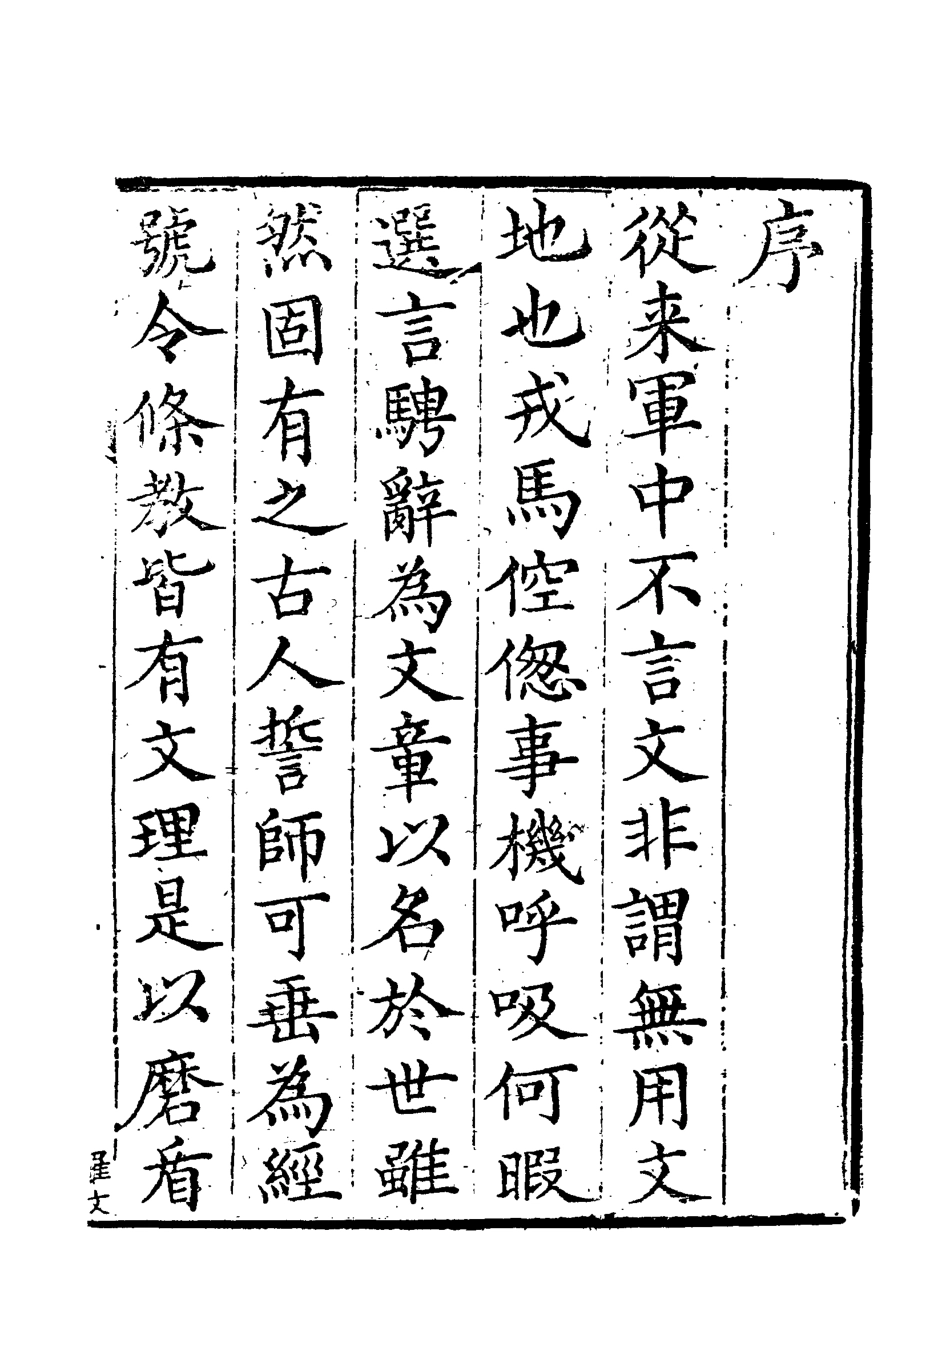 序
從来軍中不言文非謂無用文
地也戎馬倥偬事機呼吸何暇
選言騁辭為文章以名於世雖
然固有之古人誓師可垂為經
號令條教皆有文理是以磨盾